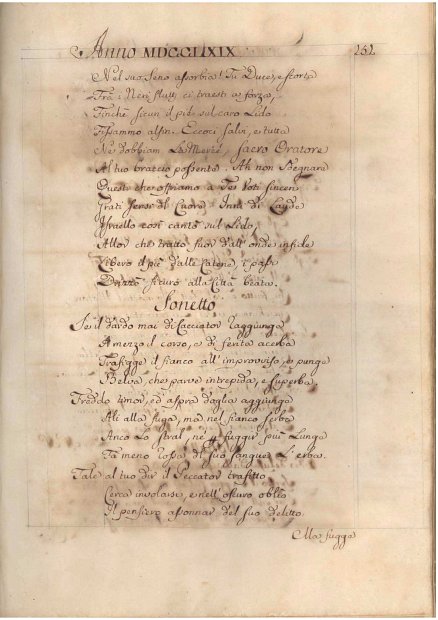 Anno MDCCLXIX 252
Nel suo Seno assorbia! Tu Duce, e scorta
Frà i Neri flutti ci traesti a forza,
Finchè sicuri il piè sul caro Lido
Fissammo alfin. Eccoci salvi, e tutta
Ne dobbiam La Mercè, sacro Oratore
Al tuo braccio possente. Ah non Sdegnare
Questi che offriamo a Te Voti sinceri
Grati sensi del Cuore. Inni di Laude
Israello così cantò sul Lido,
Allor che tratto fuor dall' onde infide
Libero il piè dalle Catene, i passi
Drizzò sicuro alla Città beata.
Sonetto
Se il dardo mai di Cacciator raggiunge
A mezzo il corso, e di ferita acerba
Trafigge il fianco all' improvviso, e punge
Belva, che parve intrepida, e superba,
Freddo timor, ed aspra doglia aggiunge
Ali alla fuga, ma nel fianco serba
Anco Lo stral, nè fuggir può Lunge
Fa meno rossa di suo sangue L' erba.
Tale al tuo dir il Peccator trafitto
Cerca involarsi, e nell' oscuro oblio
Il pensiero assonnar del suo delitto.
Ma fugge